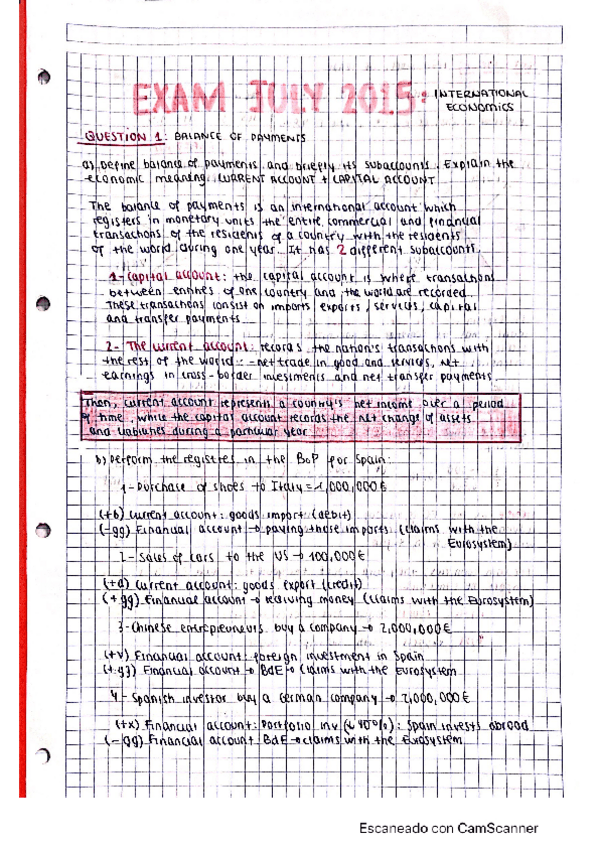 EXAM JULY 2015: INTERNATIONAL
ECONOMICS
QUESTION 1: BALANCE OF PAYMENTS
a) Define balance of payments and briefly its subaccounts. Explain the
economic meaning. CURRENT ACCOUNT + CAPITAL ACCOUNT
The balance of payments is an international account which
registers in monetary units the entire commercial and financial
transactions of the residents of a country with the residents
of the world during one year. It has 2 different subaccounts.
1- Capital account: the capital account is where transactions
between entities of one country and the world are recorded.
These transactions consist on imports exports, services, capital
and transfer payments
2- The current account: records the nation's transactions with
the rest of the world: -net trade in good and services, net
earnings in cross-border investments and net transfer payments
Then, current account represents a country's net income over a period
of time, while the capital account records the net change of assets
and liabilities during a particular year
b) Perform the registres in the BoP for Spain:
1- Purchase of shoes to Italy = 1,000,000€
(+b) Current account: goods import (debit)
(-gg) Financial account → paying those imports (claims with the
Eurosystem)
2- Sales of cars to the US → 100,000€
(+a) Current account: goods export (credit)
(+gg) Financial account → reciving money (claims with the Eurosystem)
3- Chinese entrepreneurs buy a company → 2,000,000€
(+v) Financial account: foreign investment in Spain
(+gg) Financial account → BdE → claims with the Eurosystem
4- Spanish investor buy a German company → 2,000,000€
(+x) Financial account: Portfolio inv (<10%): Spain invests abroad
(-gg) Financial account: BdE → claims with the Eurosystem
Escaneado con CamScanner